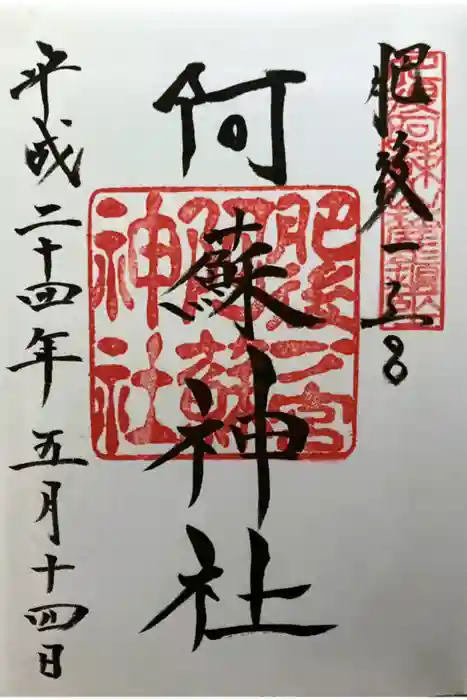 肥後一之宮
阿蘇神社
肥後一宮
阿蘇
神社
平成二十四年五月十四日